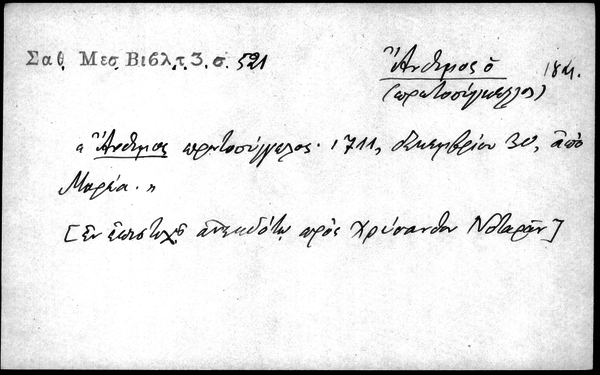 Σαθ. Μεσ. Βιβλ. τ. 3. σ. 521
Ἄνθιμος ὁ
(πρωτοσύγκελλος)
"Ἄνθιμος πρωτοσύγγελος. 1711, δεκεμβρίου 30, ἀπὸ
Μορέα."
[ἐν ἐπιστολῇ ἀνεκδότῳ πρὸς Χρύσανθον Νοταρᾶν]